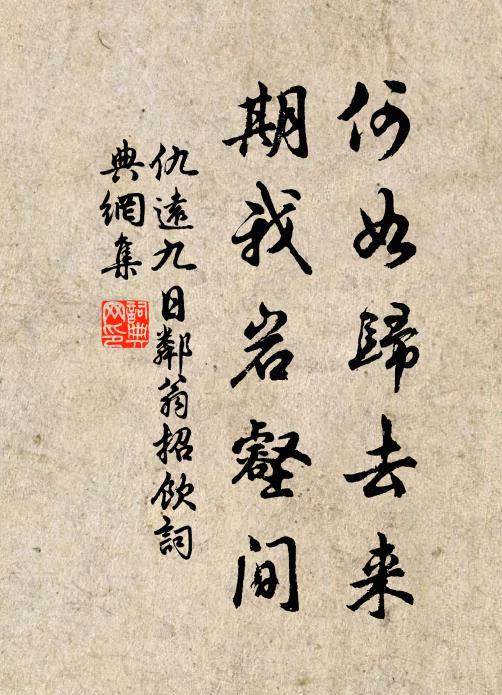 何如歸去来
期我岩壑间
仇遠九日鄰翁招飲詞
典網集
詞典网印